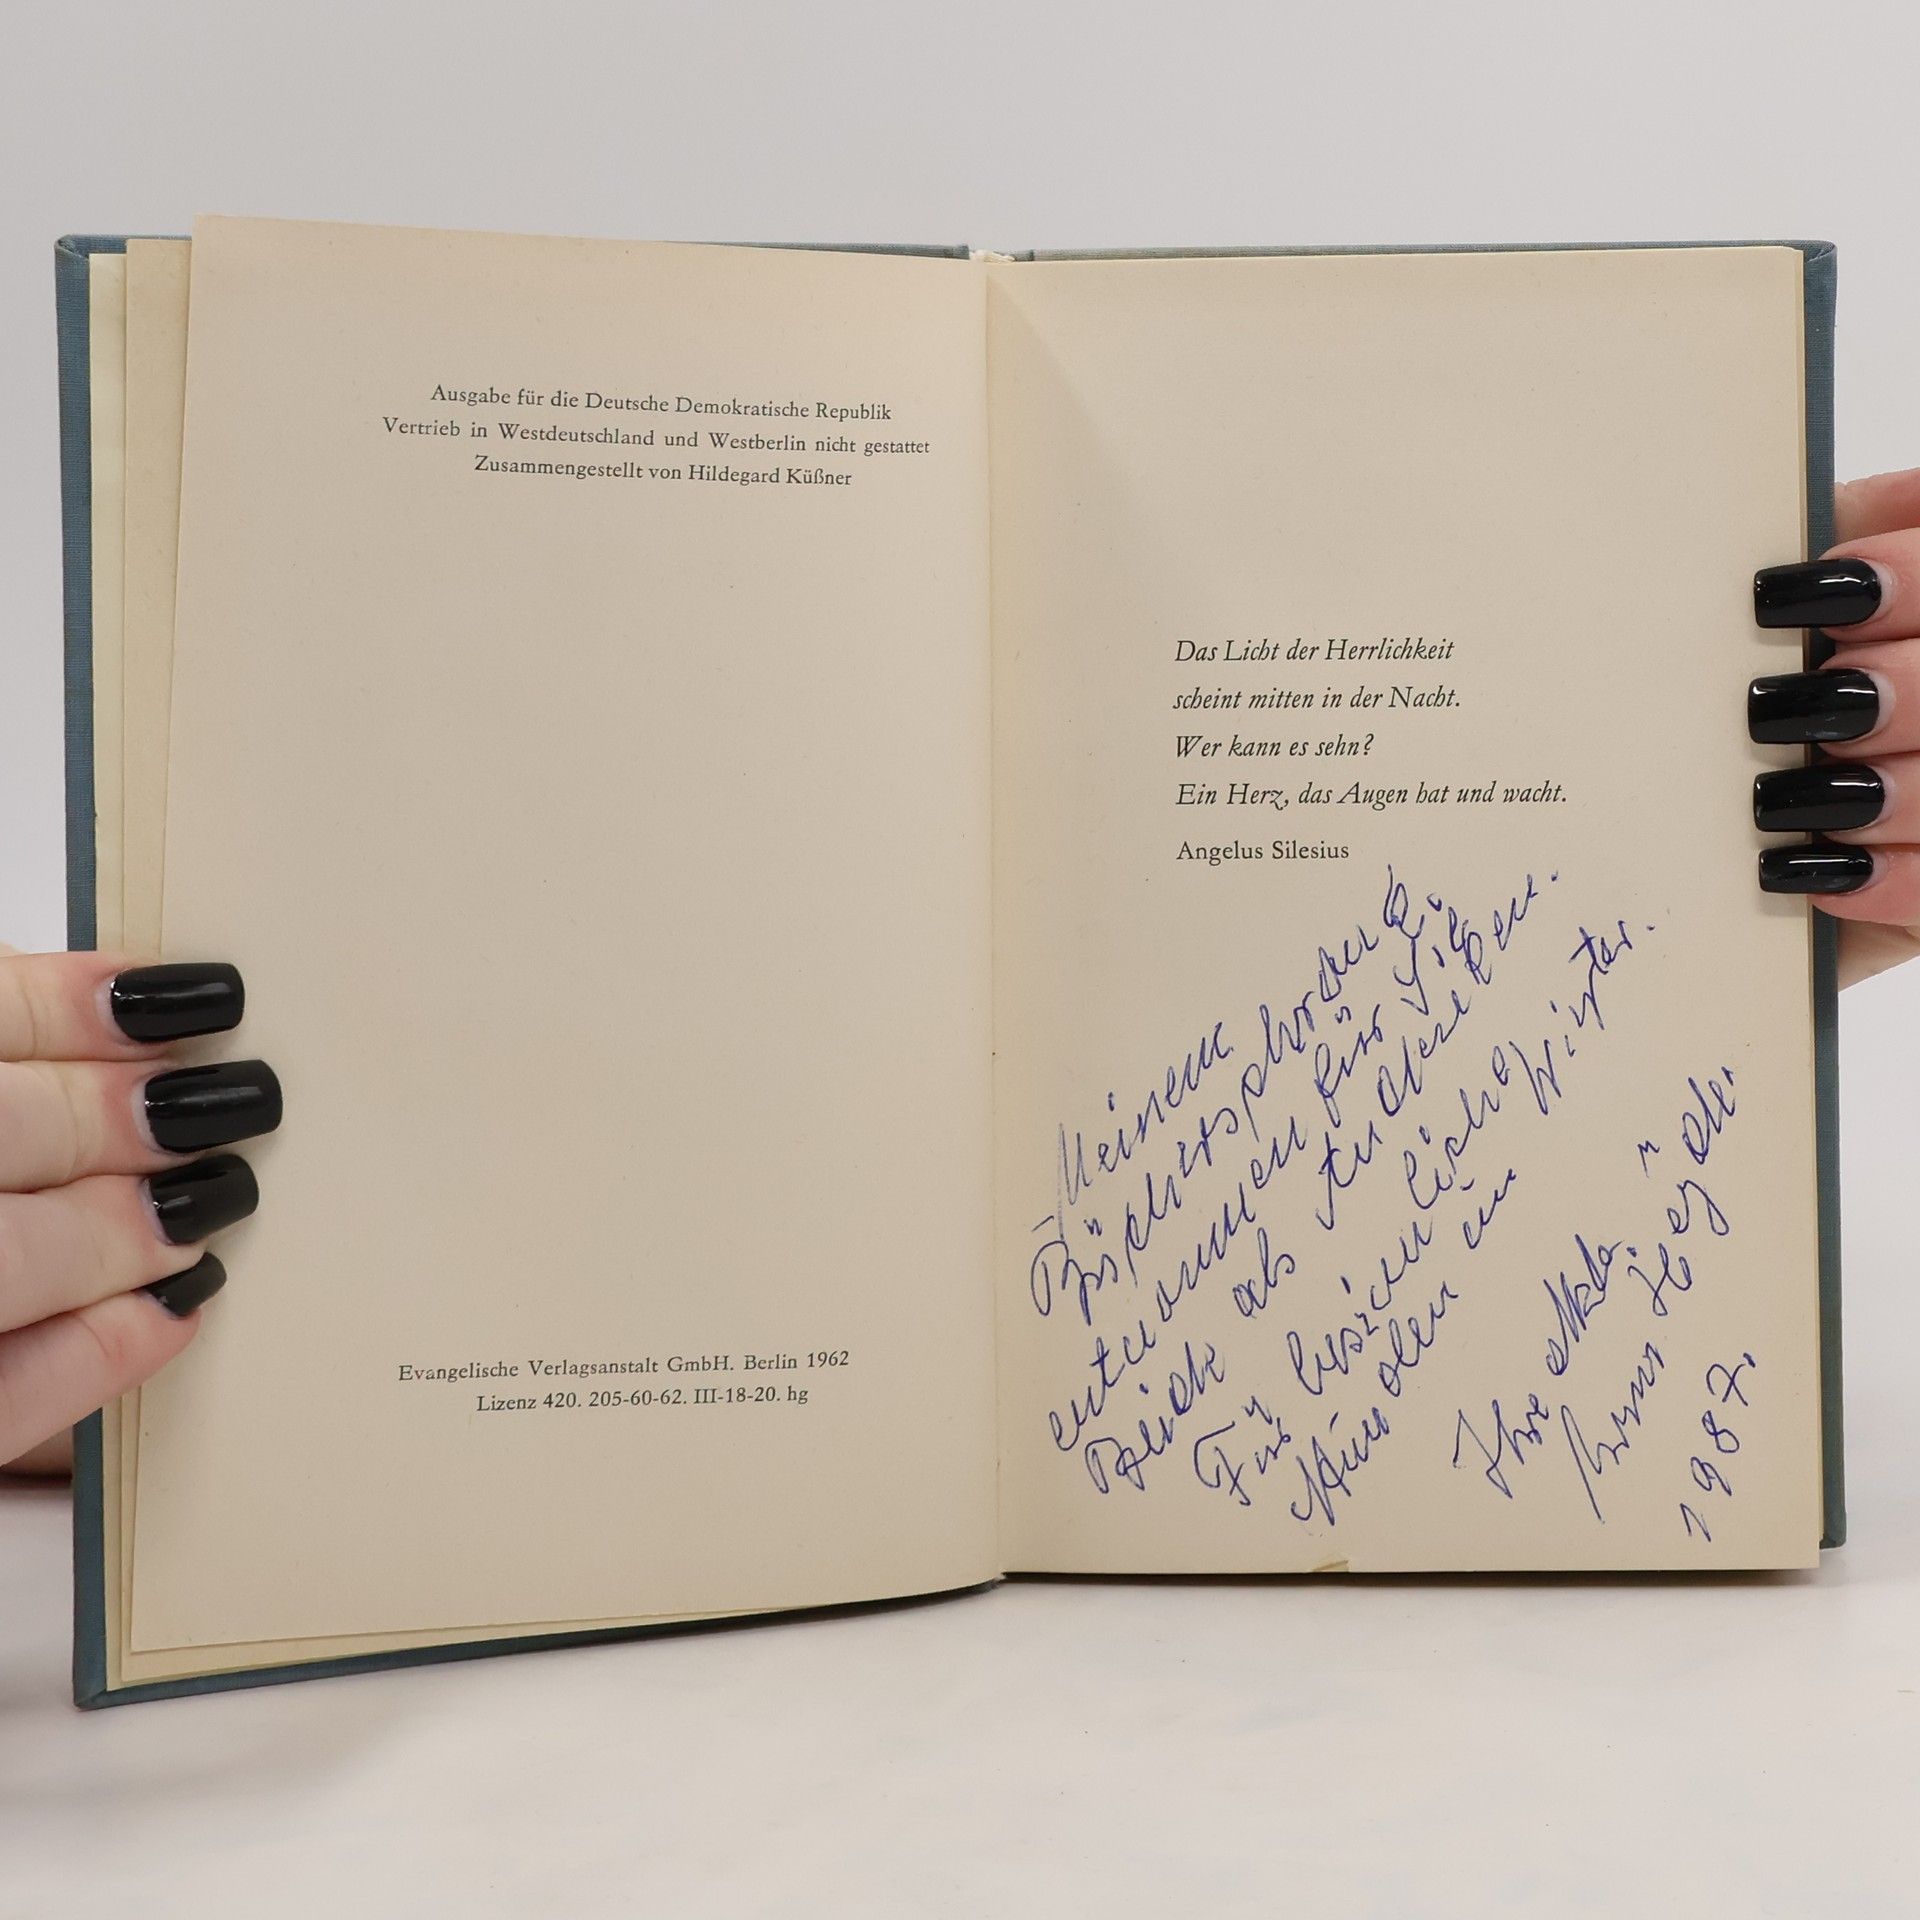 Ausgabe für die Deutsche Demokratische Republik
Vertrieb in Westdeutschland und Westberlin nicht gestattet
Zusammengestellt von Hildegard Küßner
Evangelische Verlagsanstalt GmbH. Berlin 1962
Lizenz 420. 205-60-62. III-18-20. hg
Das Licht der Herrlichkeit
scheint mitten in der Nacht.
Wer kann es sehn?
Ein Herz, das Augen hat und wacht.
Angelus Silesius
Meinem
Bücherschrank
entnommen für Sie
Beide als Andenken.
Für besinnliche
Stunden im Winter.
Ihre
1987.